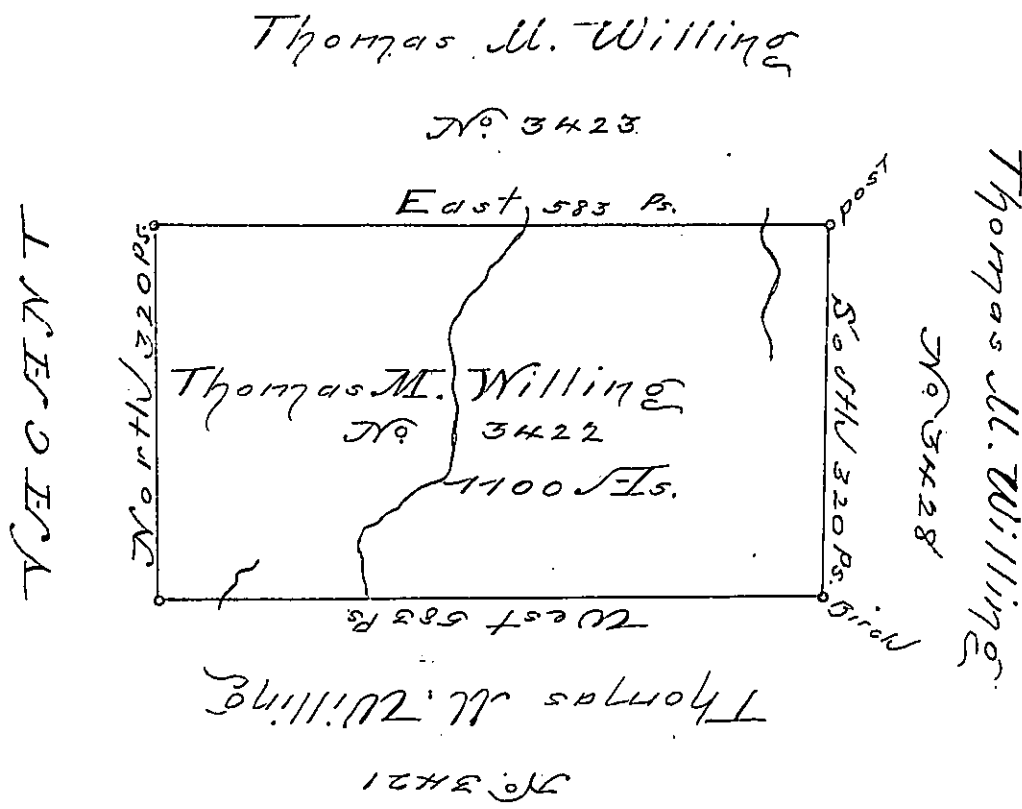 Thomas M. Willing
No. 3423
East 583 Ps.
Post
VACANT
North 320 Ps.
Thomas M. Willing
No 3422
1100 As.
South 320 Ps.
No. 3428
Thomas M. Willing
Birch
West 583 Ps
Thomas M. Willing
No. 3421